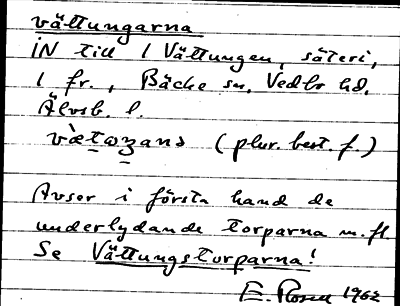 vättungarna
IN till 1 Vättungen, säteri,
1 fr., Bäcke sn, Vedbo hd,
Älvsb. l.
(plur. best. f.)
Avser i första hand de
underlydande torparna m.fl
Se Vättungstorparna!
E. Rosell 1962